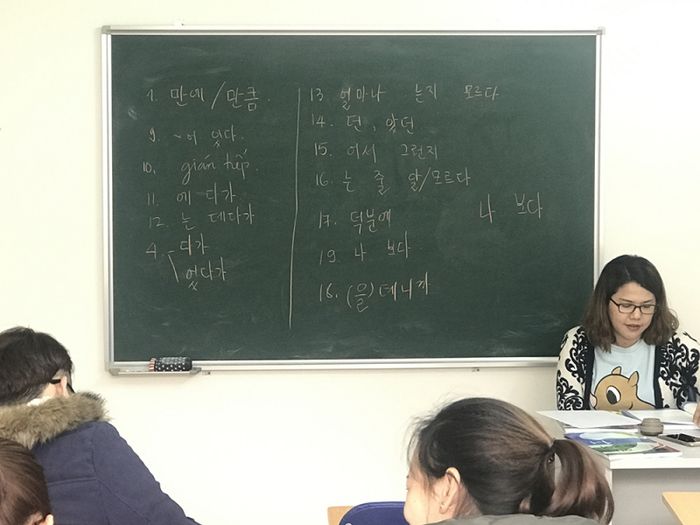 7. 만에 / 만큼.
9. ~어 있다.
10. gián tiếp.
11. 에 다가
12. 는 데다가
4. - 다가
었다가
13 얼마나 는지 모르다
14. 던, 았던
15. 어서 그런지
16. 는 줄 알/모르다
17. 덕분에
19. 나 보다.
16. (을) 테니까
나 보다